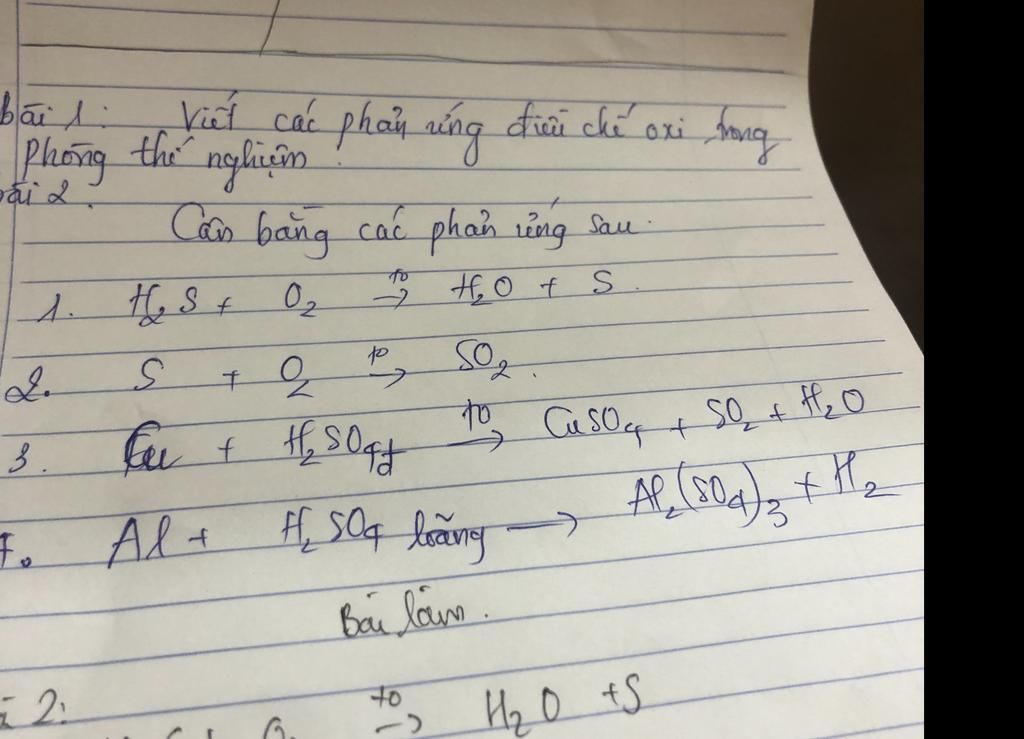 bài 1: Viết các phản ứng điều chế oxi trong
phòng thí nghiệm.
bài 2.
Cân bằng các phản ứng sau.
1. H₂S + O₂ →(t⁰) H₂O + S.
2. S + O₂ →(t⁰) SO₂.
3. Cu + H₂SO₄đ →(t⁰) CuSO₄ + SO₂ + H₂O
Al + H₂SO₄ loãng → Al₂(SO₄)₃ + H₂
Bài làm.
2: →(t⁰) H₂O + S